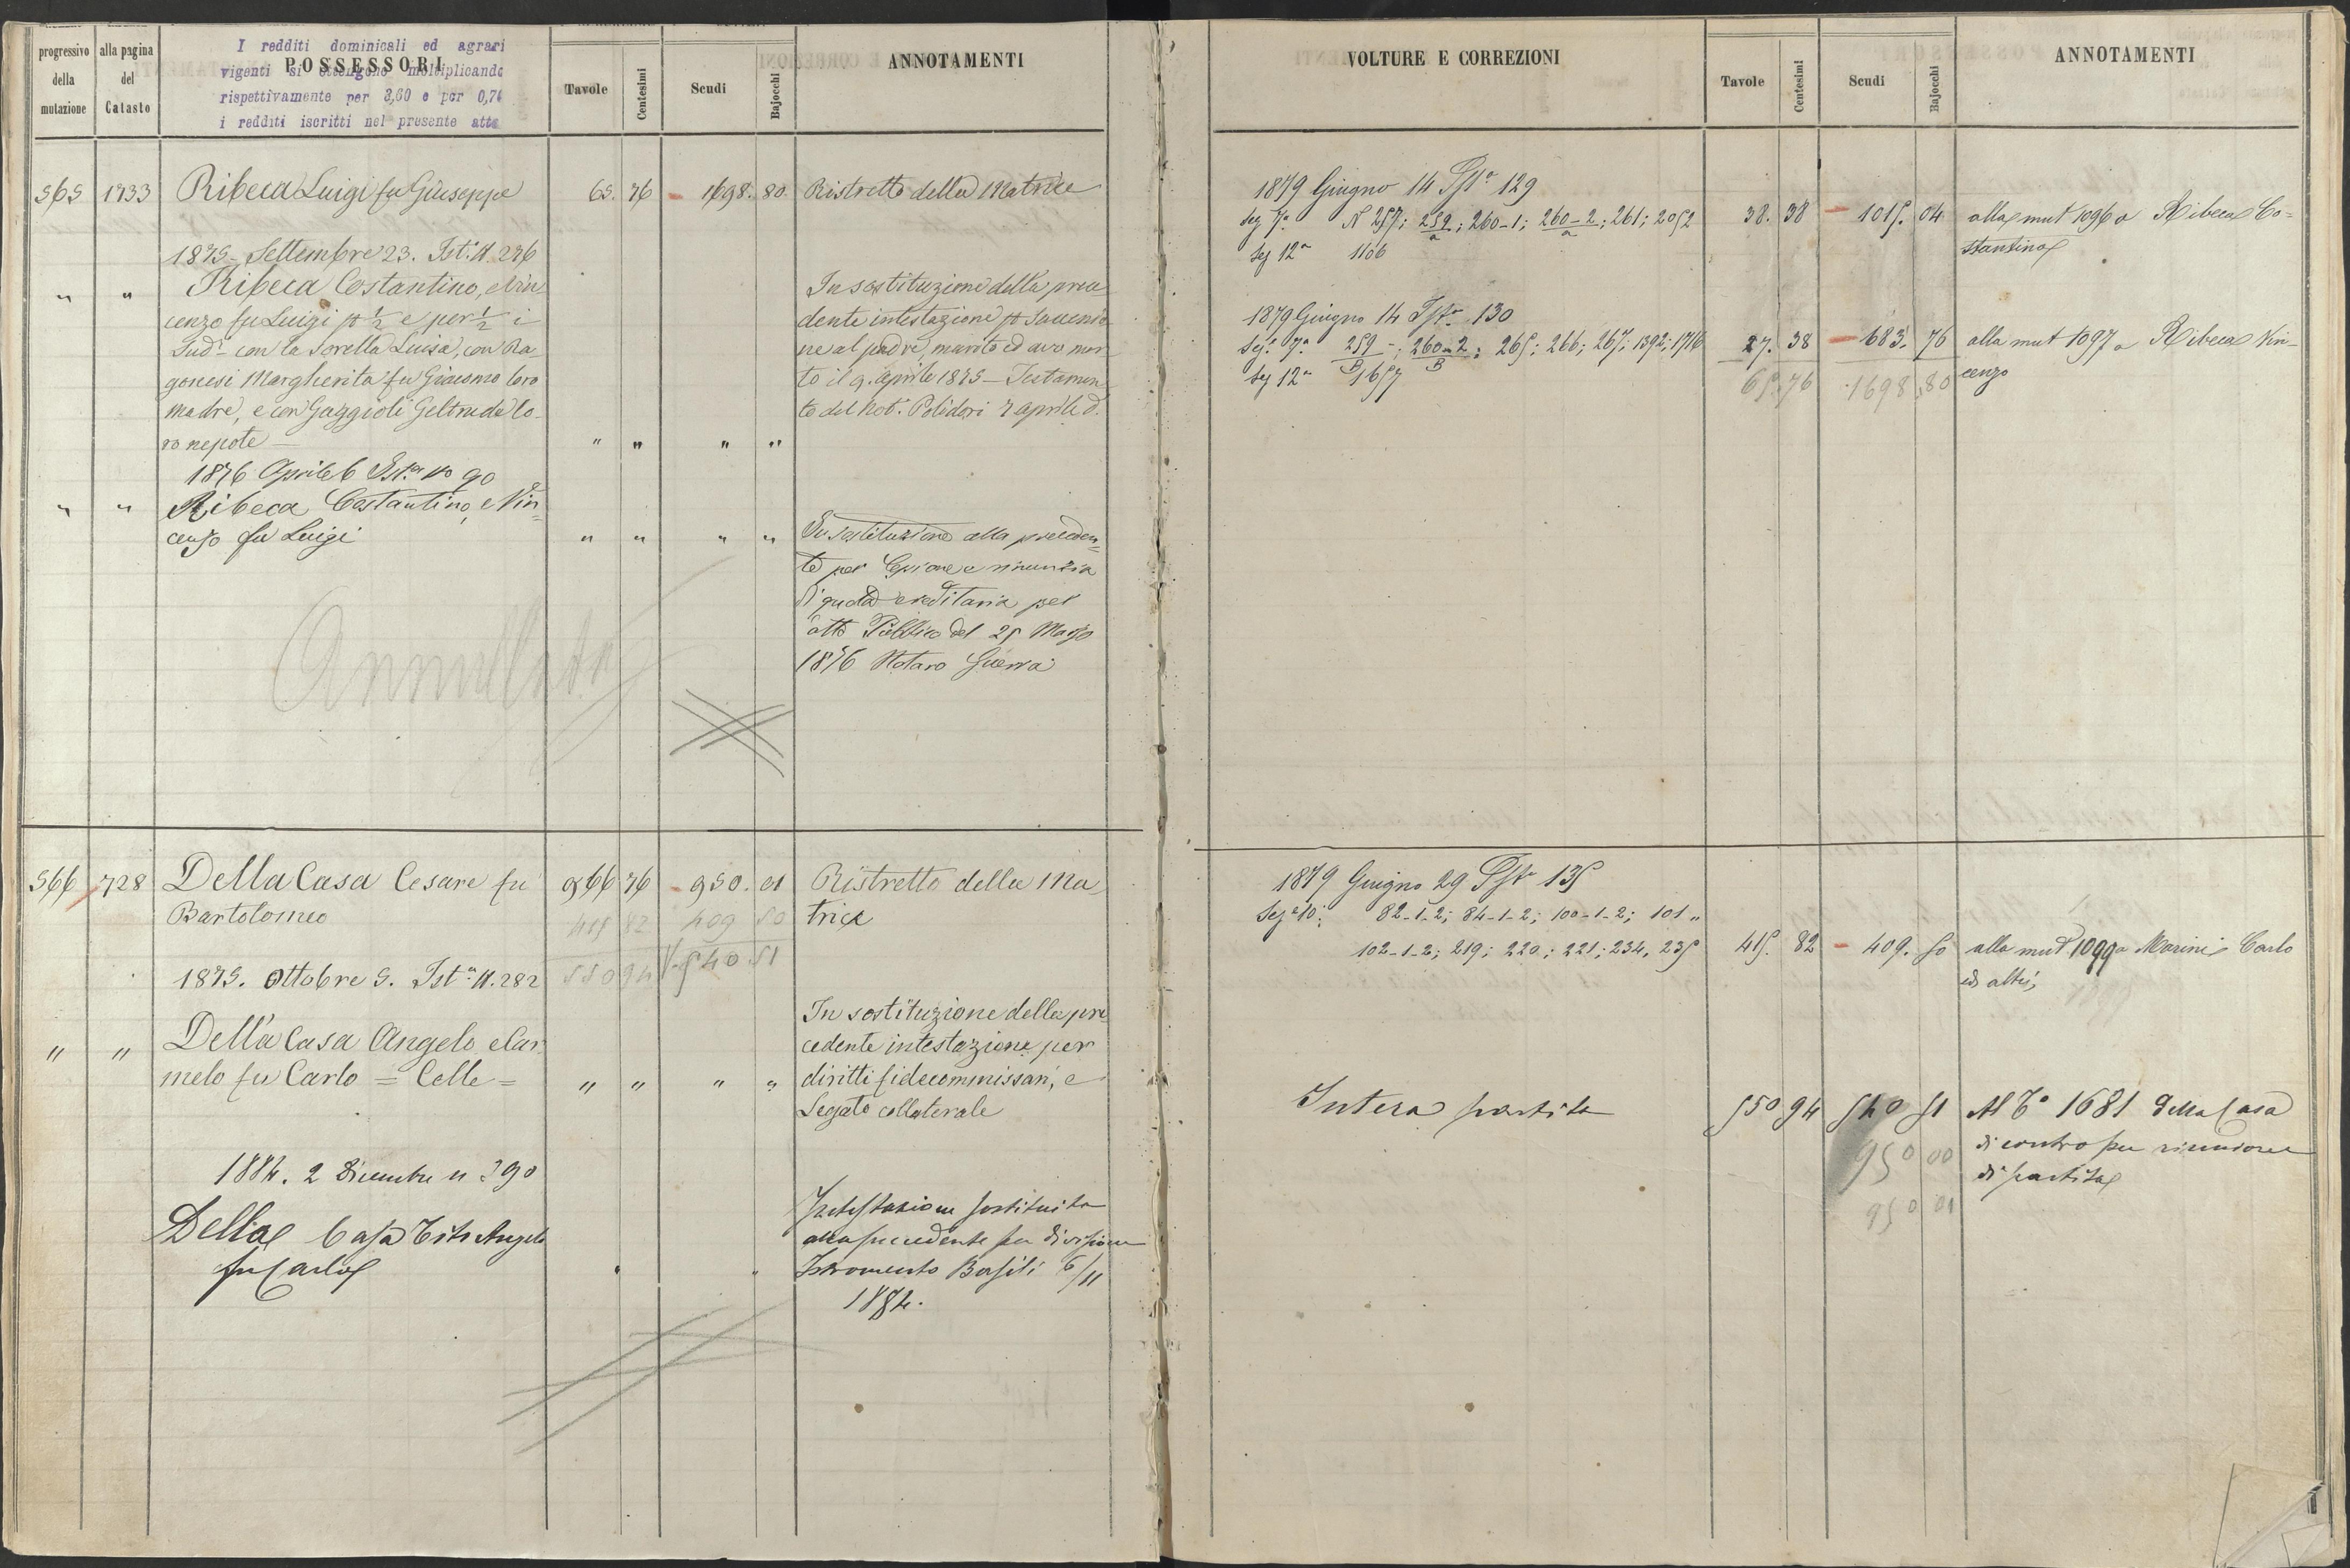 progressivo della mutazione
alla pagina del Catasto
POSSESSORI
I redditi dominicali ed agrari
vigenti si ottengono moltiplicando
rispettivamente per 3,60 e per 0,74
i redditi iscritti nel presente atto
Tavole
Centesimi
Scudi
Bajocchi
ANNOTAMENTI
565 1733 Ribeca Luigi fu Giuseppe 65. 76 1698. 80. Ristretto della Matrice
1875 - Settembre 23. Ist.a N. 276
" " Ribeca Costantino, e Vin-
cenzo fu Luigi p 1/2 e per 1/2 i
Sud.i con la Sorella Luisa, con Ra-
gonesi Margherita fu Giacomo loro
madre, e con Gaggioli Geltrude lo-
ro nepote " " " "
In sostituzione della prece-
dente intestazione p
ne al padre, marito ed avo mor-
to il 9. aprile 1875 - Testamen-
to del Not. Polidori 7 aprile d.
1876 Aprile 6 Ist.a No 90
" " Ribeca Costantino, e Vin-
cenzo fu Luigi " " " "
In sostituzione alla preceden-
te per Cessione e rinunzia
di quota ereditaria per
atto Pubblico del 25 Marzo
1876 Notaro Guerra
Annullata
566 728 Della Casa Cesare fu 966 76 950. 01 Ristretto della Ma
Bartolomeo 415 82 409 50 trice
550 94 540 51
1875. Ottobre 5. Ist.a N. 282
" " Della Casa Angelo e Car-
melo fu Carlo = Celle = " " " "
In sostituzione della pre-
cedente intestazione per
diritti fidecommissari, e
Legato collaterale
1884. 2 Dicembre n 390
Della Casa Tito Angelo
fu Carlo
Intestazione sostituita
alla precedente per divisione
Istromento Basili 6/11
1884.
VOLTURE E CORREZIONI
Tavole
Centesimi
Scudi
Bajocchi
ANNOTAMENTI
1879 Giugno 14 Ist.a 129
Sez 7.a N 257; 259/a; 260-1; 260-2/a; 261; 2052 38. 38 1015. 04 alla mut 1096 a Ribeca Co=
Sez 12a 1106 stantino
1879 Giugno 14 Ist.a 130
Sez. 7.a 259/B; 260-2/B; 265; 266; 267; 1392; 1716 27. 38 683. 76 alla mut 1097 a Ribeca Vin-
Sez 12a 1657 65. 76 1698 80 cenzo
1879 Giugno 29 Ist.a 135
Sez.e 10. 82-1-2; 84-1-2; 100-1-2; 101 "
102-1-2; 219; 220; 221; 234, 235 415. 82 409. 50 alla mut 1099 a Marini Carlo
ed altri;
Intera partita 550 94 540 51 Al To 1681 Della Casa
950 00 di contro per riunione
di partita
950 01